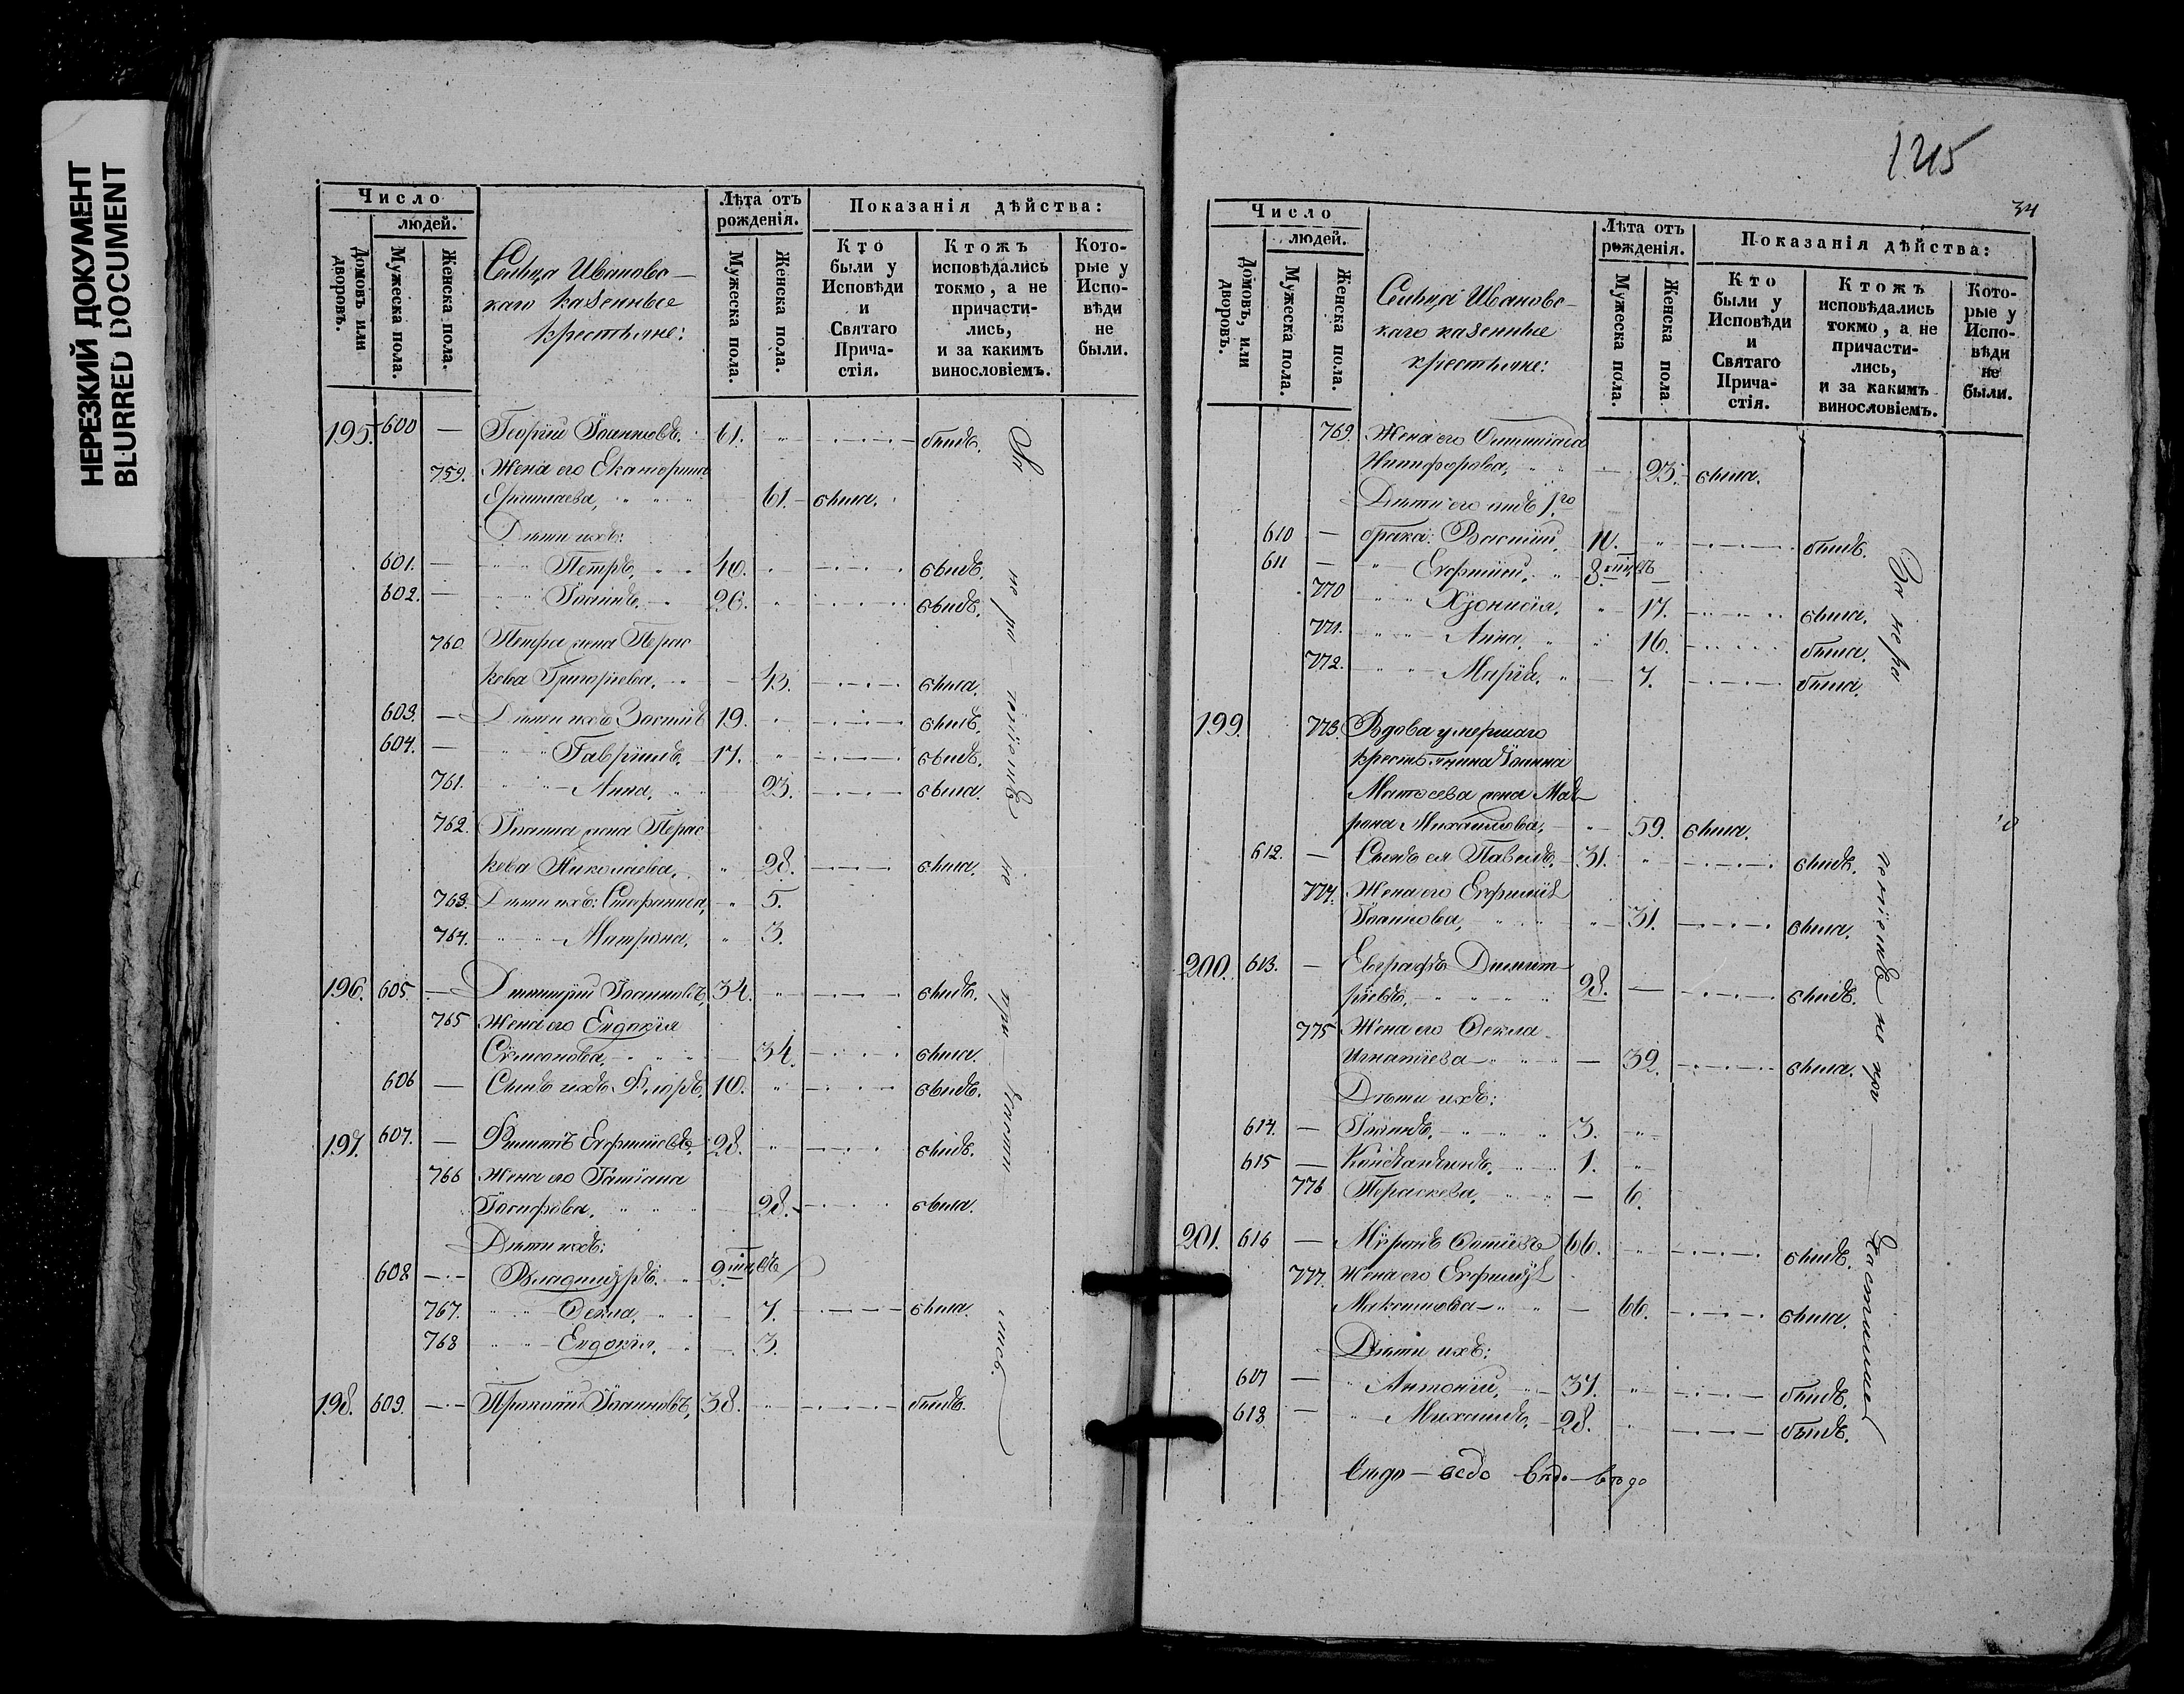 НЕРЕЗКИЙ ДОКУМЕНТ
BLURRED DOCUMENT
Число
людей.
Домовъ или дворовъ.
Мужеска пола.
Женска пола.
Селца Ивановс-
каго казенные
крестьяне:
Лѣта отъ
рожденія.
Мужеска пола.
Женска пола.
Показанія дѣйства:
Кто
были у
Исповѣди
и
Святаго
Прича-
стія.
Ктожъ
исповѣдались
токмо, а не
причасти-
лись,
и за какимъ
винословіемъ.
Кото-
рые у
Испо-
вѣди
не
были.
195. 600 — Георгій Іоанновъ, 61. былъ.
759. Жена его Екатерина
61. была.
Дѣти ихъ:
601. — Петръ, 40. былъ.
602. — Іоаннъ, 26. былъ.
760. Петра жена Парас-
кева Григорьева, 43. была.
603. — Дѣти ихъ 19. былъ.
604. — Гавріилъ, 17. былъ.
761. Анна, 23. была.
762. Іоанна жена Парас-
кева Николаева, 28. была.
763. Дѣти ихъ: Стефанида, 5.
764. Матрона, 3.
196. 605. — Димитрій Іоанновъ, 34. былъ.
765 Жена его Евдокія
Сѵмеонова, 34. была.
606 — Сынъ ихъ Флоръ, 10. былъ.
197. 607. — Филиппъ Евфиміевъ, 28. былъ.
766 Жена его Татіана
Іосифова, 28. была.
Дѣти ихъ:
608 — Владиміръ, 2.
767. Ѳекла, 7. была.
768 Евдокія, 3.
198. 609. — Прокопій Іоанновъ, 38. былъ.
За не ра —ченіемъ не при — частились
1215
34
Число
людей.
Домовъ, или дворовъ.
Мужеска пола.
Женска пола.
Селца Ивановс-
каго казенные
крестьяне:
Лѣта отъ
рожденія.
Мужеска пола.
Женска пола.
Показанія дѣйства:
Кто
были у
Исповѣди
и
Святаго
Прича-
стія.
Ктожъ
исповѣдались
токмо, а не
причасти-
лись,
и за какимъ
винословіемъ.
Кото-
рые у
Испо-
вѣди
не
были.
769. Жена его
Никифорова, 23. была.
Дѣти его отъ 1го
610 — брака: Василій, 10. былъ.
611 — Евфимій, 3.
770 Хіонисія, 17. была.
771. Анна, 16. была.
772. Марія, 7. была.
199. 773. Вдова умершаго
крестьянина Іоанна
Матѳеева жена Мат-
рона Михайлова, 59. была.
612. — Сынъ ея Павелъ, 31. былъ.
774. Жена его Евфимія
Іоаннова, 31. была.
200. 613. — Евграфъ Димит-
ріевъ, 28. былъ.
775 Жена его Ѳекла
Игнатіева 32. была.
Дѣти ихъ:
614. — Іоаннъ, 3.
615 — Константинъ, 1.
776 Параскева, 6.
201. 616 — Мѵронъ Фотіевъ 66. былъ.
777. Жена его Евфимія
Максимова 66. была.
Дѣти ихъ:
617 — Антоній, 37. былъ.
618 — Михаилъ, 28. былъ.
За не ра — ченіемъ не при — частились